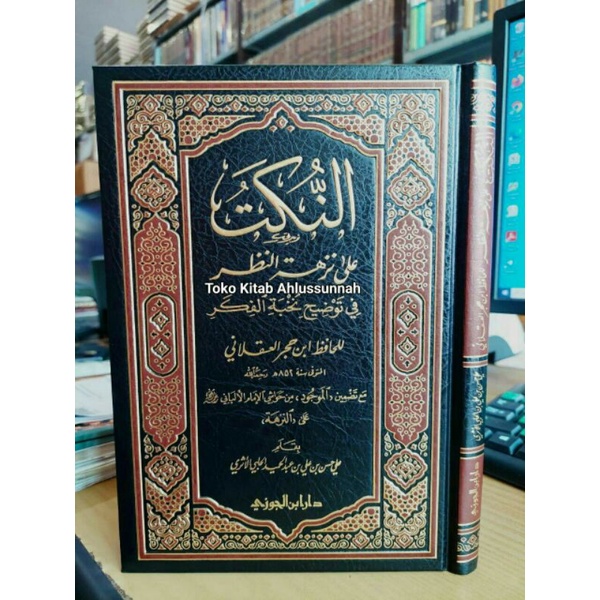 النُّكَت
على نزهة النظر
Toko Kitab Ahlussunnah
في توضيح نخبة الفكر
للحافظ ابن حجر العسقلاني
المتوفى سنة ٨٥٢ هـ رحمه الله
مع تضمين «الموجود» من حواشي الإمام الألباني
على «النزهة»
بقلم
علي بن حسن بن علي بن عبد الحميد الحلبي الأثري
دار ابن الجوزي
دار ابن الجوزي